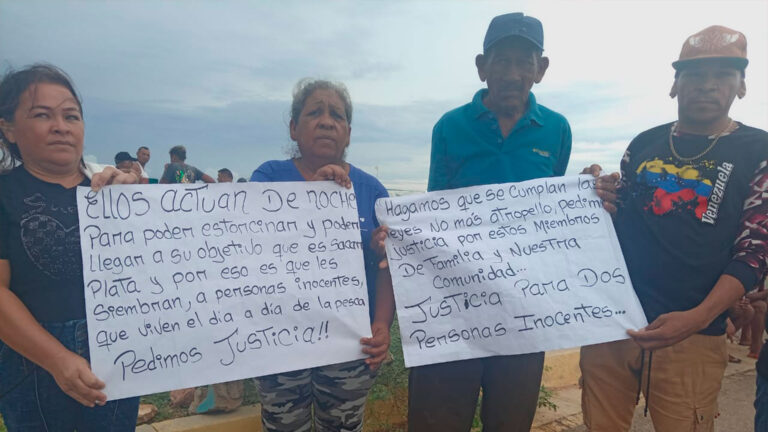 Ellos actuan De noche
Para poder estorcinar y poder
Llegar a su objetivo que es sacar
Plata y por eso es que les
Siembran, a personas inocentes,
que viven el día a día de la pesca
Pedimos Justicia!!
Hagamos que se cumplan las
leyes No más atropello, pedimos
Justicia por estos Miembros
De Familia y Nuestra
Comunidad...
Justicia Para Dos
Personas Inocentes...
Venezuela